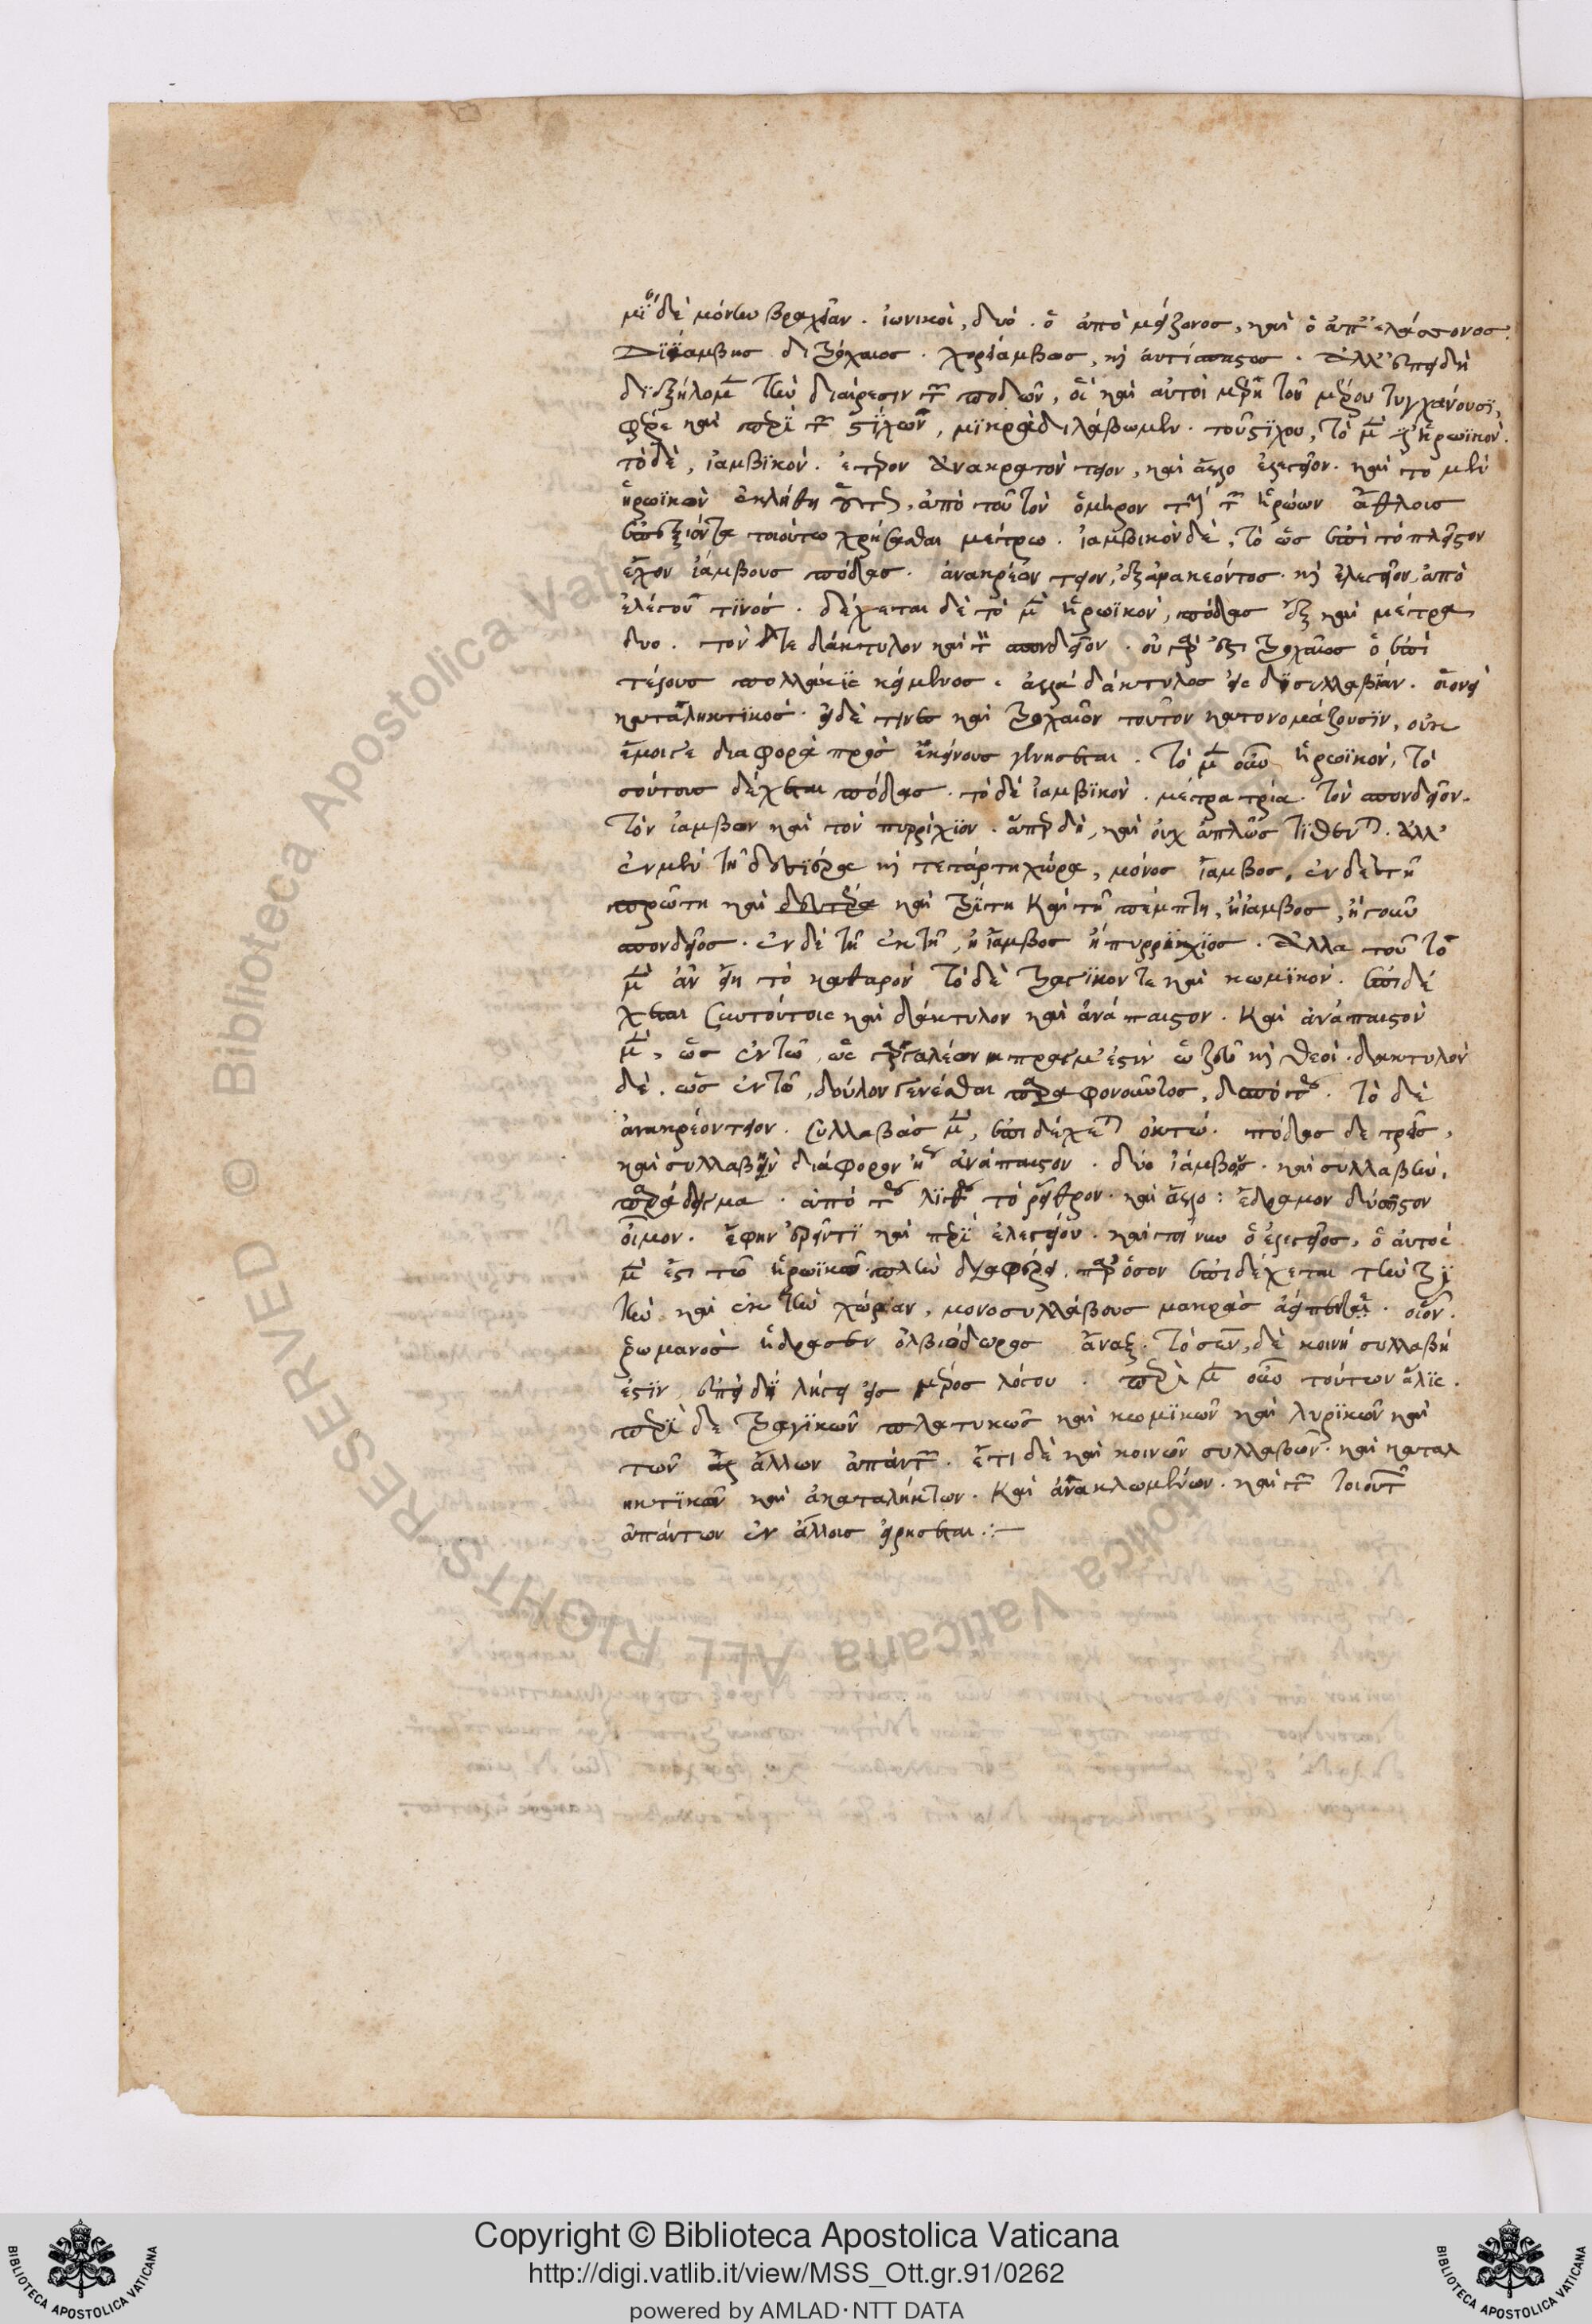 δὲ μόνην βραχεῖαν. ἰωνικοὶ, δυό. ὁ ἀπὸ μείζονος, καὶ ὁ ἀπ' ἐλάσσονος.
Διΐαμβος διτρόχαιος. χορίαμβος, κὶ ἀντίσπαστος. Ἀλλ' ἐπειδὴ
τὴν διαίρεσιν τῶν ποδῶν, οἳ καὶ αὐτοὶ μέρη τοῦ μέτρου τυγχάνουσϊ,
φέρε καὶ περὶ τῶν στίχων, μϊκρὰ διαλάβωμεν. τοῦ στίχου, τὸ μὲν ἡρωϊκόν.
τὸ δὲ, ἰαμβϊκόν. ἕτερον Ἀνακρεόντειον, καὶ ἄλλο ἐλεγεῖον. καὶ το μὲν
ἡρωϊκὸν ἐκλήθη οὕτως, ἀπὸ τοῦ τὸν ὅμηρον τῶν ἡρώων ἄθλοις
τοιούτω χρήσασθαι μέτρω. ἰαμβικὸν δὲ, τὸ ὡς ἐπὶ τὸ πλεῖστον
ἔχον ἰάμβους πόδας. ἀνακρεόντειον, ἐξ ἀνακρέοντος. κὶ ἐλεγεῖον, ἀπὸ
ἐλέγου τϊνός. δέχεται δὲ τὸ μὲν ἡρωϊκὸν, πόδας ἓξ καὶ μέτρα
δυο. τὸν τε δάκτυλον καὶ τὸν σπονδεῖον. οὐ γάρ ἐστι τροχαῖος ὁ ἐπὶ
τέλους πολλάκις κείμενος. ἀλλὰ δάκτυλος εἰς δϊσυλλαβίαν. οἱονεὶ
καταληκτϊκός. εἰ δέ τινες καὶ τροχαῖον τοῦτον κατονομάζουσϊν, οὐκ
ἔμοιγε διαφορὰ πρὸς ἐκείνους γενήσεται. Τὸ μὲν οὖν ἡρωϊκὸν, το
σούτους δέχεται πόδας. τὸ δὲ ἰαμβϊκὸν. μέτρα τρία. τὸν σπονδεῖον.
τὸν ἰαμβον καὶ τὸν πυρρίχϊον. ἅπερ δὴ, καὶ οὐχ ἁπλῶς τίθενται. Ἀλλ'
ἐν μὲν τῇ δευτέρα κὶ τετάρτη χώρα, μόνος ἴαμβος. ἐν δὲ τῇ
πρώτη καὶ καὶ τρίτη Καὶ τῇ πέμπτη, ἢ ἴαμβος, ἢ γοῦν
σπονδεῖος. ἐν δὲ τῇ ἕκτη, ἢ ἴαμβος ἢ πυρρίχϊος. Ἀλλα τοῦτο
μὲν ἂν εἴη τὸ καθαρόν τὸ δὲ τραγϊκόν τε καὶ κωμϊκὸν. ἐπιδέ
χεται σὺν τούτοις καὶ δάκτυλον καὶ ἀνάπαιστον. Καὶ ἀνάπαιστον
μὲν, ὡς ἐν τῶ, ὡς ἀργαλέον πραγμ' ἐστὶν ὦ ζεῦ κὶ θεοί. δακτυλον
δὲ. ὡς ἐν τῶ, δούλον γενέσθαι παραφρονοῦντος, δεσπότου. Τὸ δὲ
ἀνακρέοντειον. συλλαβὰς μὲν, ἐπιδέχεται ὀκτώ. πόδας δε τρεῖς,
καὶ συλλαβὴν διάφορον ἢ ἀνάπαιστον. δύο ἰάμβους. καὶ συλλαβὴν,
παράδειγμα. ἀπὸ τοῦ λίθου τὸ ῥεῖθρον. καὶ ἄλλο: ἔδραμον δύστον
οἶμον. ἔφην καὶ περὶ ἐλεγείου. καὶ τοίνυν ὁ ἐλεγεῖος, ὁ αὐτὸς
μὲν ἐστι τῶ ἡρωϊκῶ. πλὴν διαφέρει. παρ' ὅσον ἐπιδέχεται τὴν τρί
την καὶ ἕκτην χώραν, μονοσυλλάβους μακρὰς οἷον.
ῥωμανὸς ἥδρασεν ὀλβιόδωρος ἄναξ. τὸ σεν, δὲ κοινὴ συλλαβή
ἐστϊν, ἐπειδὴ λήγει εἰς μέρος λόγου. περὶ μὲν οὖν τούτων ἅλϊς.
περὶ δε τραγϊκῶν πλατυκῶς καὶ κωμϊκῶν καὶ λυρϊκῶν καὶ
τῶν ἄλλων ἁπάντων. ἔτι δὲ καὶ κοινῶν συλλαβῶν. καὶ καταλ
ηκτϊκῶν καὶ ἀκαταλήκτων. Καὶ ἀνακλωμένων. καὶ τῶν τοιούτων
ἁπάντων ἐν ἄλλοις εἰρησεται:—
Copyright © Biblioteca Apostolica Vaticana
http://digi.vatlib.it/view/MSS_Ott.gr.91/0262
powered by AMLAD·NTT DATA
BIBLIOTECA APOSTOLICA VATICANA
BIBLIOTECA APOSTOLICA VATICANA
© Biblioteca Apostolica Vaticana ALL RIGHTS RESERVED